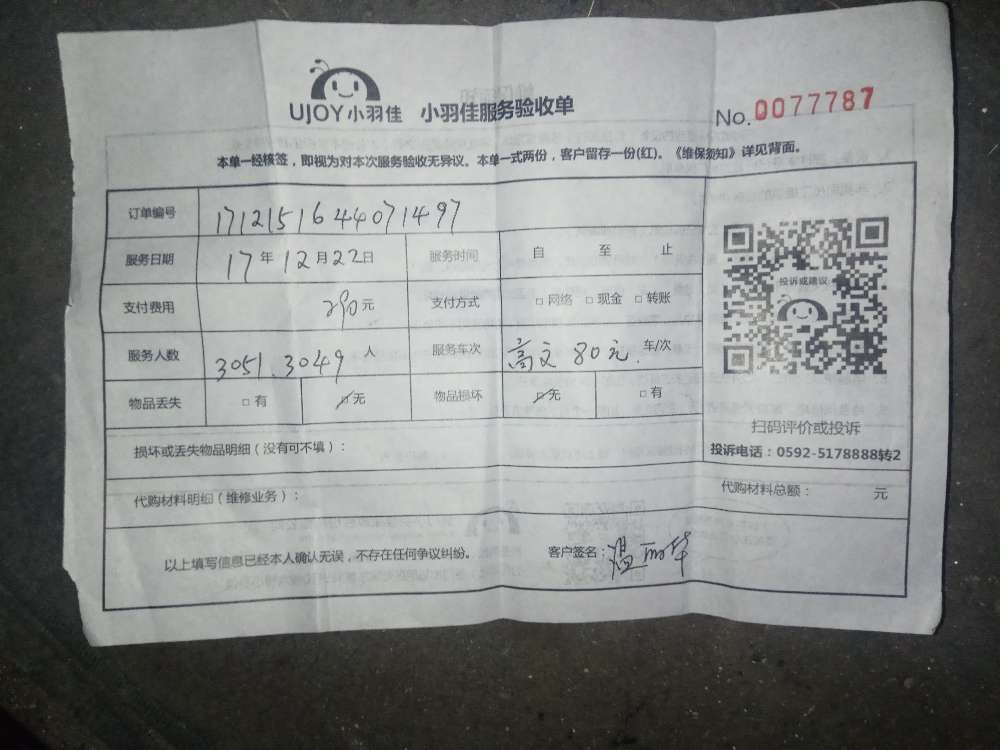 UJOY小羽佳 小羽佳服务验收单
No.0077787
本单一经核签，即视为对本次服务验收无异议。本单一式两份，客户留存一份(红)。《维保须知》详见背面。
订单编号 1712151644071497
服务日期 17年12月22日 服务时间 自 至 止
支付费用 290元 支付方式 □网络 □现金 □转账
投诉或建议
服务人数 3051.3049人 服务车次 高文 80元. 车/次
物品丢失 □有 □无 物品损坏 □无 □有
扫码评价或投诉
损坏或丢失物品明细（没有可不填）：
投诉电话：0592-5178888转2
代购材料明细（维修业务）：
代购材料总额： 元
以上填写信息已经本人确认无误，不存在任何争议纠纷。 客户签名：温丽华